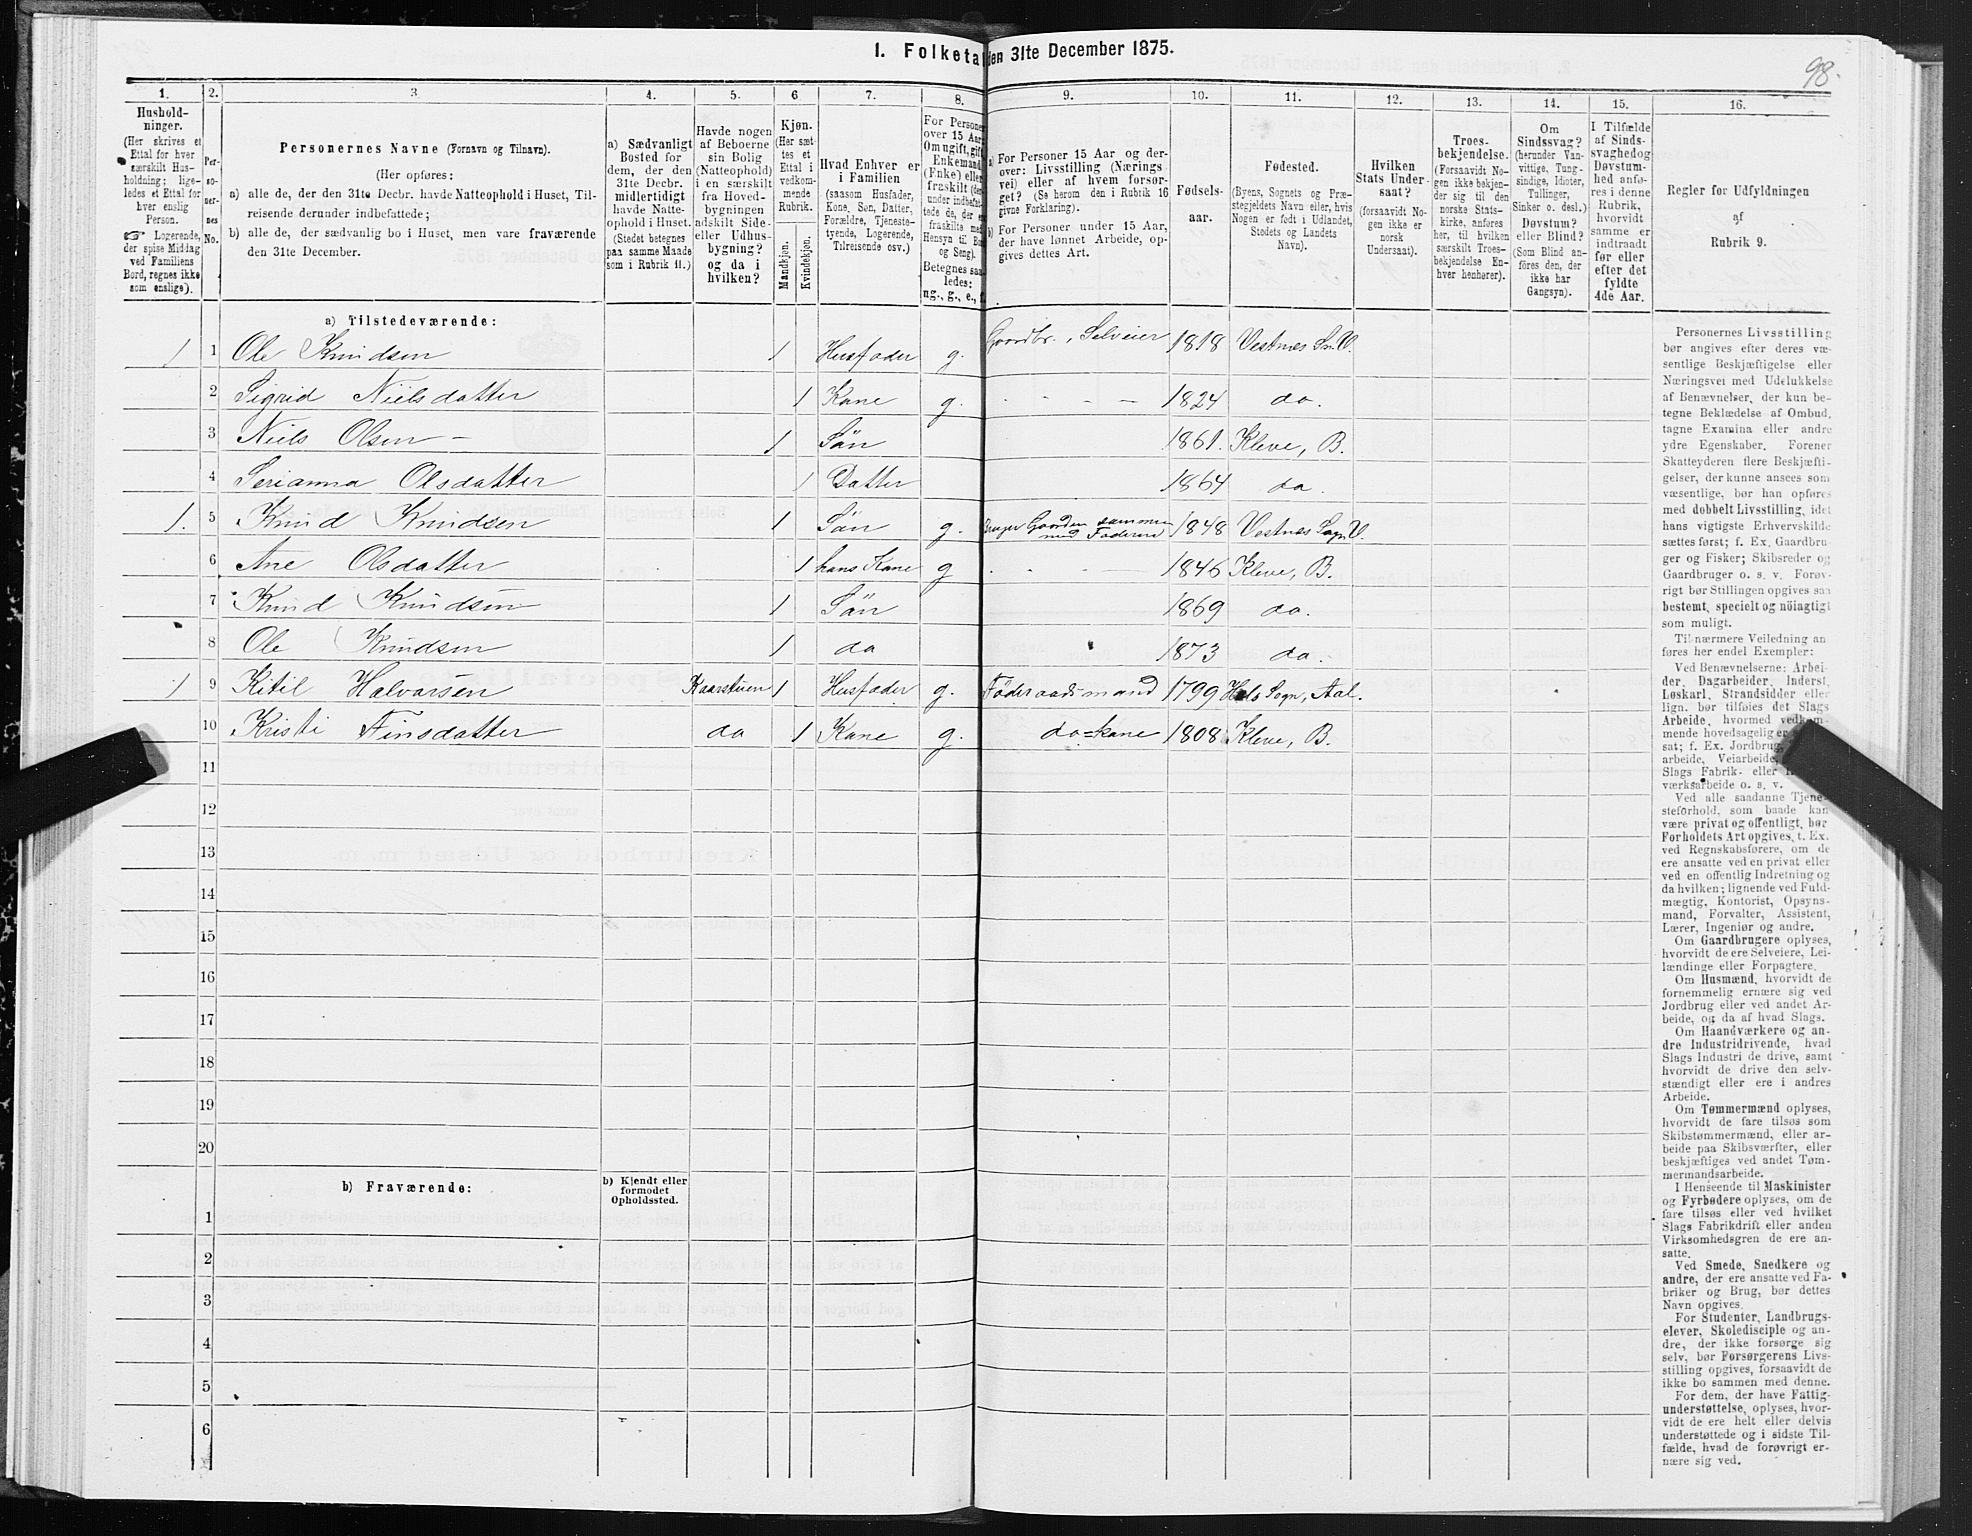 I. Folketal den 31te December 1875.
98.
1.
Hushold-
ninger.
(Her skrives et
Ettal for hver
særskilt Hus-
holdning; lige-
ledes et Ettal for
hver enslig
Person.
☞ Logerende,
der spise Middag
ved Familiens
Bord, regnes ikke
som enslige).
2.
Per-
so-
ner-
nes
No.
3.
Personernes Navne (Fornavn og Tilnavn).
(Her opføres:
a) alle de, der den 31te Decbr. havde Natteophold i Huset, Til-
reisende derunder indbefattede;
b) alle de, der sædvanlig bo i Huset, men vare fraværende
den 31te December.
4.
a) Sædvanligt
Bosted for
dem, der den
31te Decbr.
midlertidigt
havde Natte-
ophold i Huset.
(Stedet betegnes
paa samme Maade
som i Rubrik 11.)
5.
Havde nogen
af Beboerne
sin Bolig
(Natteophold)
i en særskilt
fra Hoved-
bygningen
adskilt Side-
eller Udhus-
bygning?
og da i
hvilken?
6
Kjøn.
(Her sæt-
tes et
Ettal i
vedkom-
mende
Rubrik.
Mandkjøn.
Kvindekjøn.
7.
Hvad Enhver er
i Familien
(saasom Husfader,
Kone, Søn, Datter,
Forældre, Tjeneste-
tyende, Logerende,
Tilreisende osv.)
8.
For Persone
over 15 Aar
Om ugift, gift
Enkemand
(Enke) elle
fraskilt (der
under indbefat-
tede de, der e
fraskilte med
Hensyn til Bo
og Seng).
Betegnes saa
ledes:
ug., g., e., f.
9.
a) For Personer 15 Aar og der-
over: Livsstilling (Nærings-
vei) eller af hvem forsør-
get? (Se herom den i Rubrik 16
givne Forklaring).
b) For Personer under 15 Aar,
der have lønnet Arbeide, op-
gives dettes Art.
10.
Fødsels-
aar.
11.
Fødested.
(Byens, Sognets og Præ-
stegjeldets Navn eller, hvis
Nogen er født i Udlandet,
Stedets og Landets
Navn).
12.
Hvilken
Stats Under-
saat?
(forsaavidt No-
gen ikke er
norsk
Undersaat).
13.
Troes-
bekjendelse.
(Forsaavidt No-
gen ikke bekjen-
der sig til den
norske Stats-
kirke, anføres
her, til hvilken
særskilt Troes-
bekjendelse En-
hver henhører).
14.
Om
Sindssvag?
(herunder Van-
vittige, Tung-
sindige, Idioter,
Tullinger,
Sinker o. desl.)
Døvstum?
eller Blind?
(Som Blind an-
føres den, der
ikke har
Gangsyn).
15.
I Tilfælde
af Sinds-
svaghed og
Døvstum-
hed anfø-
res i denne
Rubrik,
hvorvidt
samme er
indtraadt
før eller
efter det
fyldte
4de Aar.
16.
Regler for Udfyldningen
af
Rubrik 9.
a) Tilstedeværende:
1 1 Ole Knudsen 1 Husfader g. Gaardbr., Selveier 1818 Vestnes Sn. V.
2 Sigrid Nielsdatter 1 Kone g. - - - - 1824 do.
3 Niels Olsen - 1 Søn 1861. Kleve, B.
4 Serianna Olsdatter 1 Datter 1864 do.
1. 5 Knud Knudsen 1 Søn g. Bruger Gaarden sammen med Faderen 1848 Vestnes Sogn V.
6 Ane Olsdatter 1 hans Kone g 1846 Kleve, B.
7 Knud Knudsen 1 Søn 1869 do.
8 Ole Knudsen 1 do 1873 do.
1 9 Kitil Halvorsen Kaarstuen 1 Husfader g. Föderaadsmand 1799 Hols Sogn, Aal.
10 Kristi Finsdatter do 1 Kone g. do=kone 1808 Kleve, B.
11
12
13
14
15
16
17
18
19
20
b) Fraværende:
b) Kjendt eller
formodet
Opholdssted.
1
2
3
4
5
6
Personernes Livsstilling
bør angives efter deres væ-
sentlige Beskjæftigelse eller
Næringsvei med Udelukkelse
af Benævnelser, der kun be-
tegne Beklædelse af Ombud,
tagne Examina eller andre
ydre Egenskaber. Forener
Skatteyderen flere Beskjæfti-
gelser, der kunne ansees som
væsentlige, bør han opføres
med dobbelt Livsstilling, idet
hans vigtigste Erhvervskilde
sættes først; f. Ex. Gaardbru-
ger og Fisker; Skibsreder og
Gaardbruger o. s. v. Forøv-
rigt bør Stillingen opgives saa
bestemt, specielt og nöiagtigt
som muligt.
Til nærmere Veiledning an
føres her endel Exempler:
Ved Benævnelserne: Arbei-
der, Dagarbeider, Inderst,
Løskarl, Strandsidder eller
lign. bør tilføies det Slags
Arbeide, hvormed vedkom-
mende hovedsagelig er
sat; f. Ex. Jordbrug,
arbeide, Veiarbeide,
Slags Fabrik- eller
værksarbeide o. s. v.
Ved alle saadanne Tjene-
steforhold, som baade kan
være privat og offentligt, bør
Forholdets Art opgives, t. Ex.
ved Regnskabsførere, om de
ere ansatte ved en privat eller
ved en offentlig Indretning og
da hvilken; lignende ved Fuld-
mægtig, Kontorist, Opsyns-
mand, Forvalter, Assistent,
Lærer, Ingeniør og andre.
Om Gaardbrugere oplyses,
hvorvidt de ere Selveiere, Lei-
lændinge eller Forpagtere.
Om Husmænd, hvorvidt de
fornemmelig ernære sig ved
Jordbrug eller ved andet Ar-
beide, og da af hvad Slags.
Om Haandværkere og an-
dre Industridrivende, hvad
Slags Industri de drive, samt
hvorvidt de drive den selv-
stændigt eller ere i andres
Arbeide.
Om Tømmermænd oplyses,
hvorvidt de fare tilsøs som
Skibstømmermænd, eller ar-
beide paa Skibsværfter, eller
beskjæftiges ved andet Tøm-
mermandsarbeide.
I Henseende til Maskinister
og Fyrbødere oplyses, om de
fare tilsøs eller ved hvilket
Slags Fabrikdrift eller anden
Virksomhedsgren de ere an-
satte.
Ved Smede, Snedkere og
andre, der ere ansatte ved Fa-
briker og Brug, bør dettes
Navn opgives.
For Studenter, Landbrugs-
elever, Skoledisciple og an-
dre, der ikke forsørge sig
selv, bør Forsørgerens Livs-
stilling opgives, forsaavidt de
ikke bo sammen med denne.
For dem, der have Fattig-
understøttelse, oplyses, hvor-
vidt de ere helt eller delvis
understøttede og i sidste Til-
fælde, hvad de forøvrigt er-
nære sig ved.